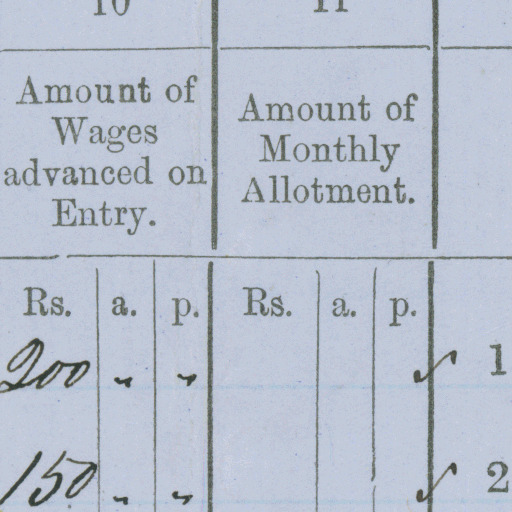 10 11
Amount of Wages advanced on Entry.
Amount of Monthly Allotment.
Rs. a. p. Rs. a. p.
200 " " 1
150 " " 2